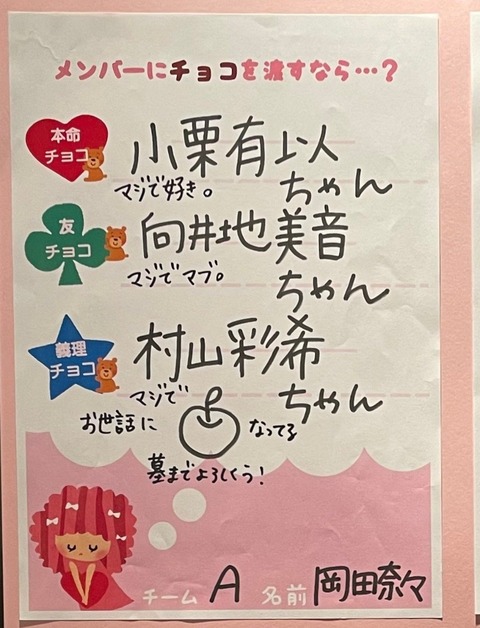 メンバーにチョコを渡すなら…?
本命
チョコ
小栗有以
ちゃん
マジで好き。
友
チョコ
向井地美音
ちゃん
マジでマブ。
義理
チョコ
村山彩希
ちゃん
マジで
お世話に
なってる
墓までよろしくう!
チーム A 名前 岡田奈々